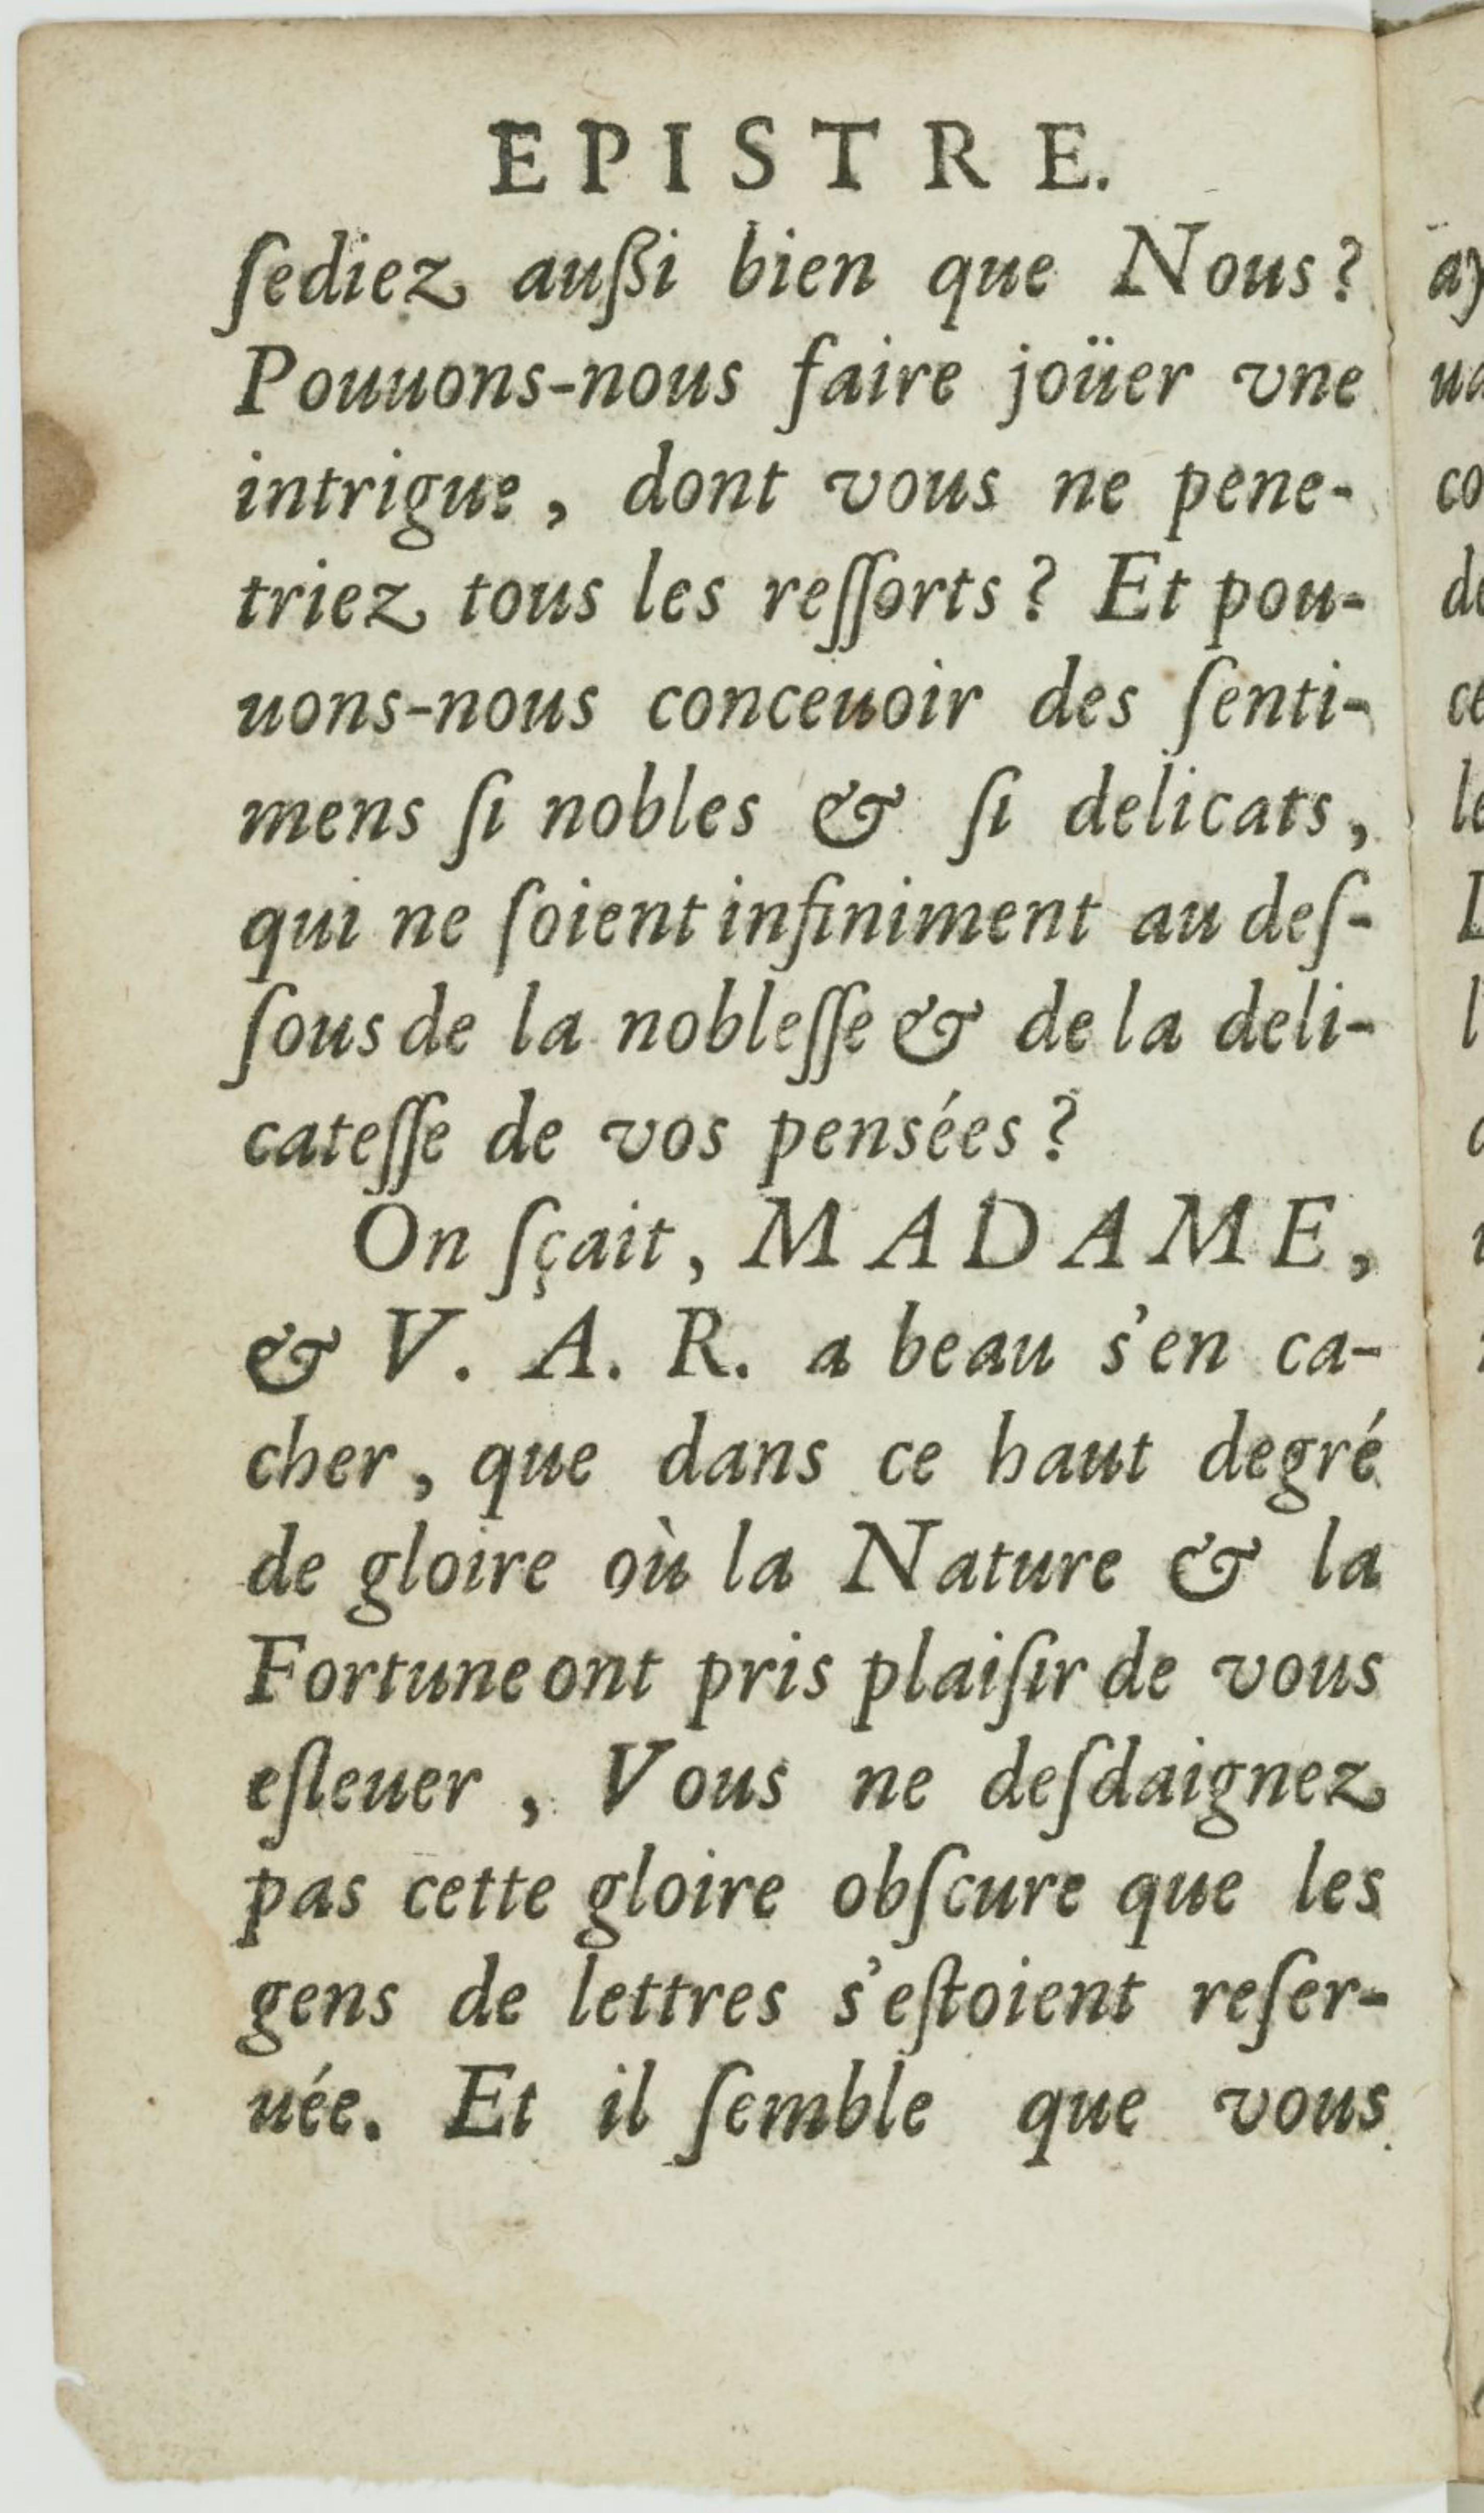 EPISTRE.
ſediez außi bien que Nous?
Pouuons-nous faire joüer vne
intrigue, dont vous ne pene-
triez tous les reſſorts? Et pou-
uons-nous conceuoir des ſenti-
mens ſi nobles & ſi delicats,
qui ne ſoient infiniment au deſ-
ſous de la nobleſſe & de la deli-
cateſſe de vos pensées?
On ſçait, MADAME,
& V. A. R. a beau s'en ca-
cher, que dans ce haut degré
de gloire où la Nature & la
Fortune ont pris plaiſir de vous
eſleuer, Vous ne deſdaignez
pas cette gloire obſcure que les
gens de lettres s'eſtoient reſer-
uée. Et il ſemble que vous